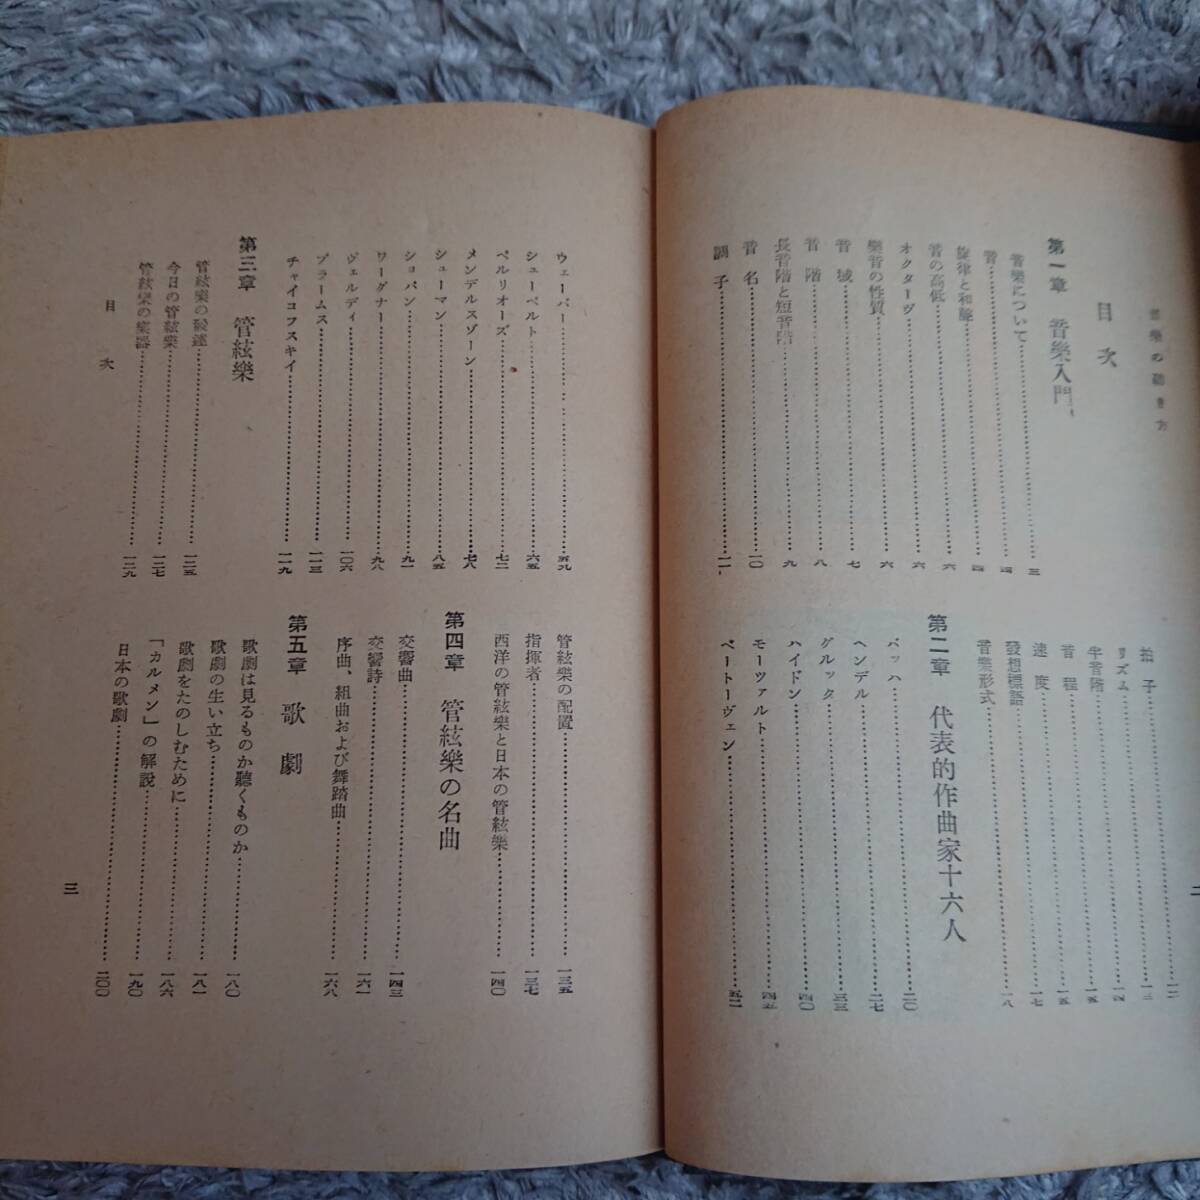 音樂の聽き方
目次
第一章 音樂入門
音樂について………三
音………四
旋律と和聲………四
音の高低………六
オクターヴ………六
樂音の性質………六
音域………七
音階………八
長音階と短音階………九
音名………一〇
調子………一一
拍子………一二
リズム………一三
半音階………一四
音程………一五
速度………一五
發想標語………一七
音樂形式………一八
第二章 代表的作曲家十六人
バッハ………二〇
ヘンデル………二七
グルック………三三
ハイドン………四〇
モーツァルト………四五
ベートーヴェン………五二
二
ウェーバー………五九
シューベルト………六五
ベルリオーズ………七二
メンデルスゾーン………七八
シューマン………八五
ショパン………九一
ワーグナー………九八
ヴェルディ………一〇六
ブラームス………一一三
チャイコフスキイ………一一九
第三章 管絃樂
管絃樂の發達………一二五
今日の管絃樂………一二七
管絃樂の樂器………一二九
管絃樂の配置………一三五
指揮者………一三七
西洋の管絃樂と日本の管絃樂………一四〇
第四章 管絃樂の名曲
交響曲………一四三
交響詩………一六一
序曲、組曲および舞踏曲………一六八
第五章 歌劇
歌劇は見るものか聽くものか………一八〇
歌劇の生い立ち………一八一
歌劇をたのしむために………一八六
「カルメン」の解説………一九〇
日本の歌劇………二〇〇
目次
三